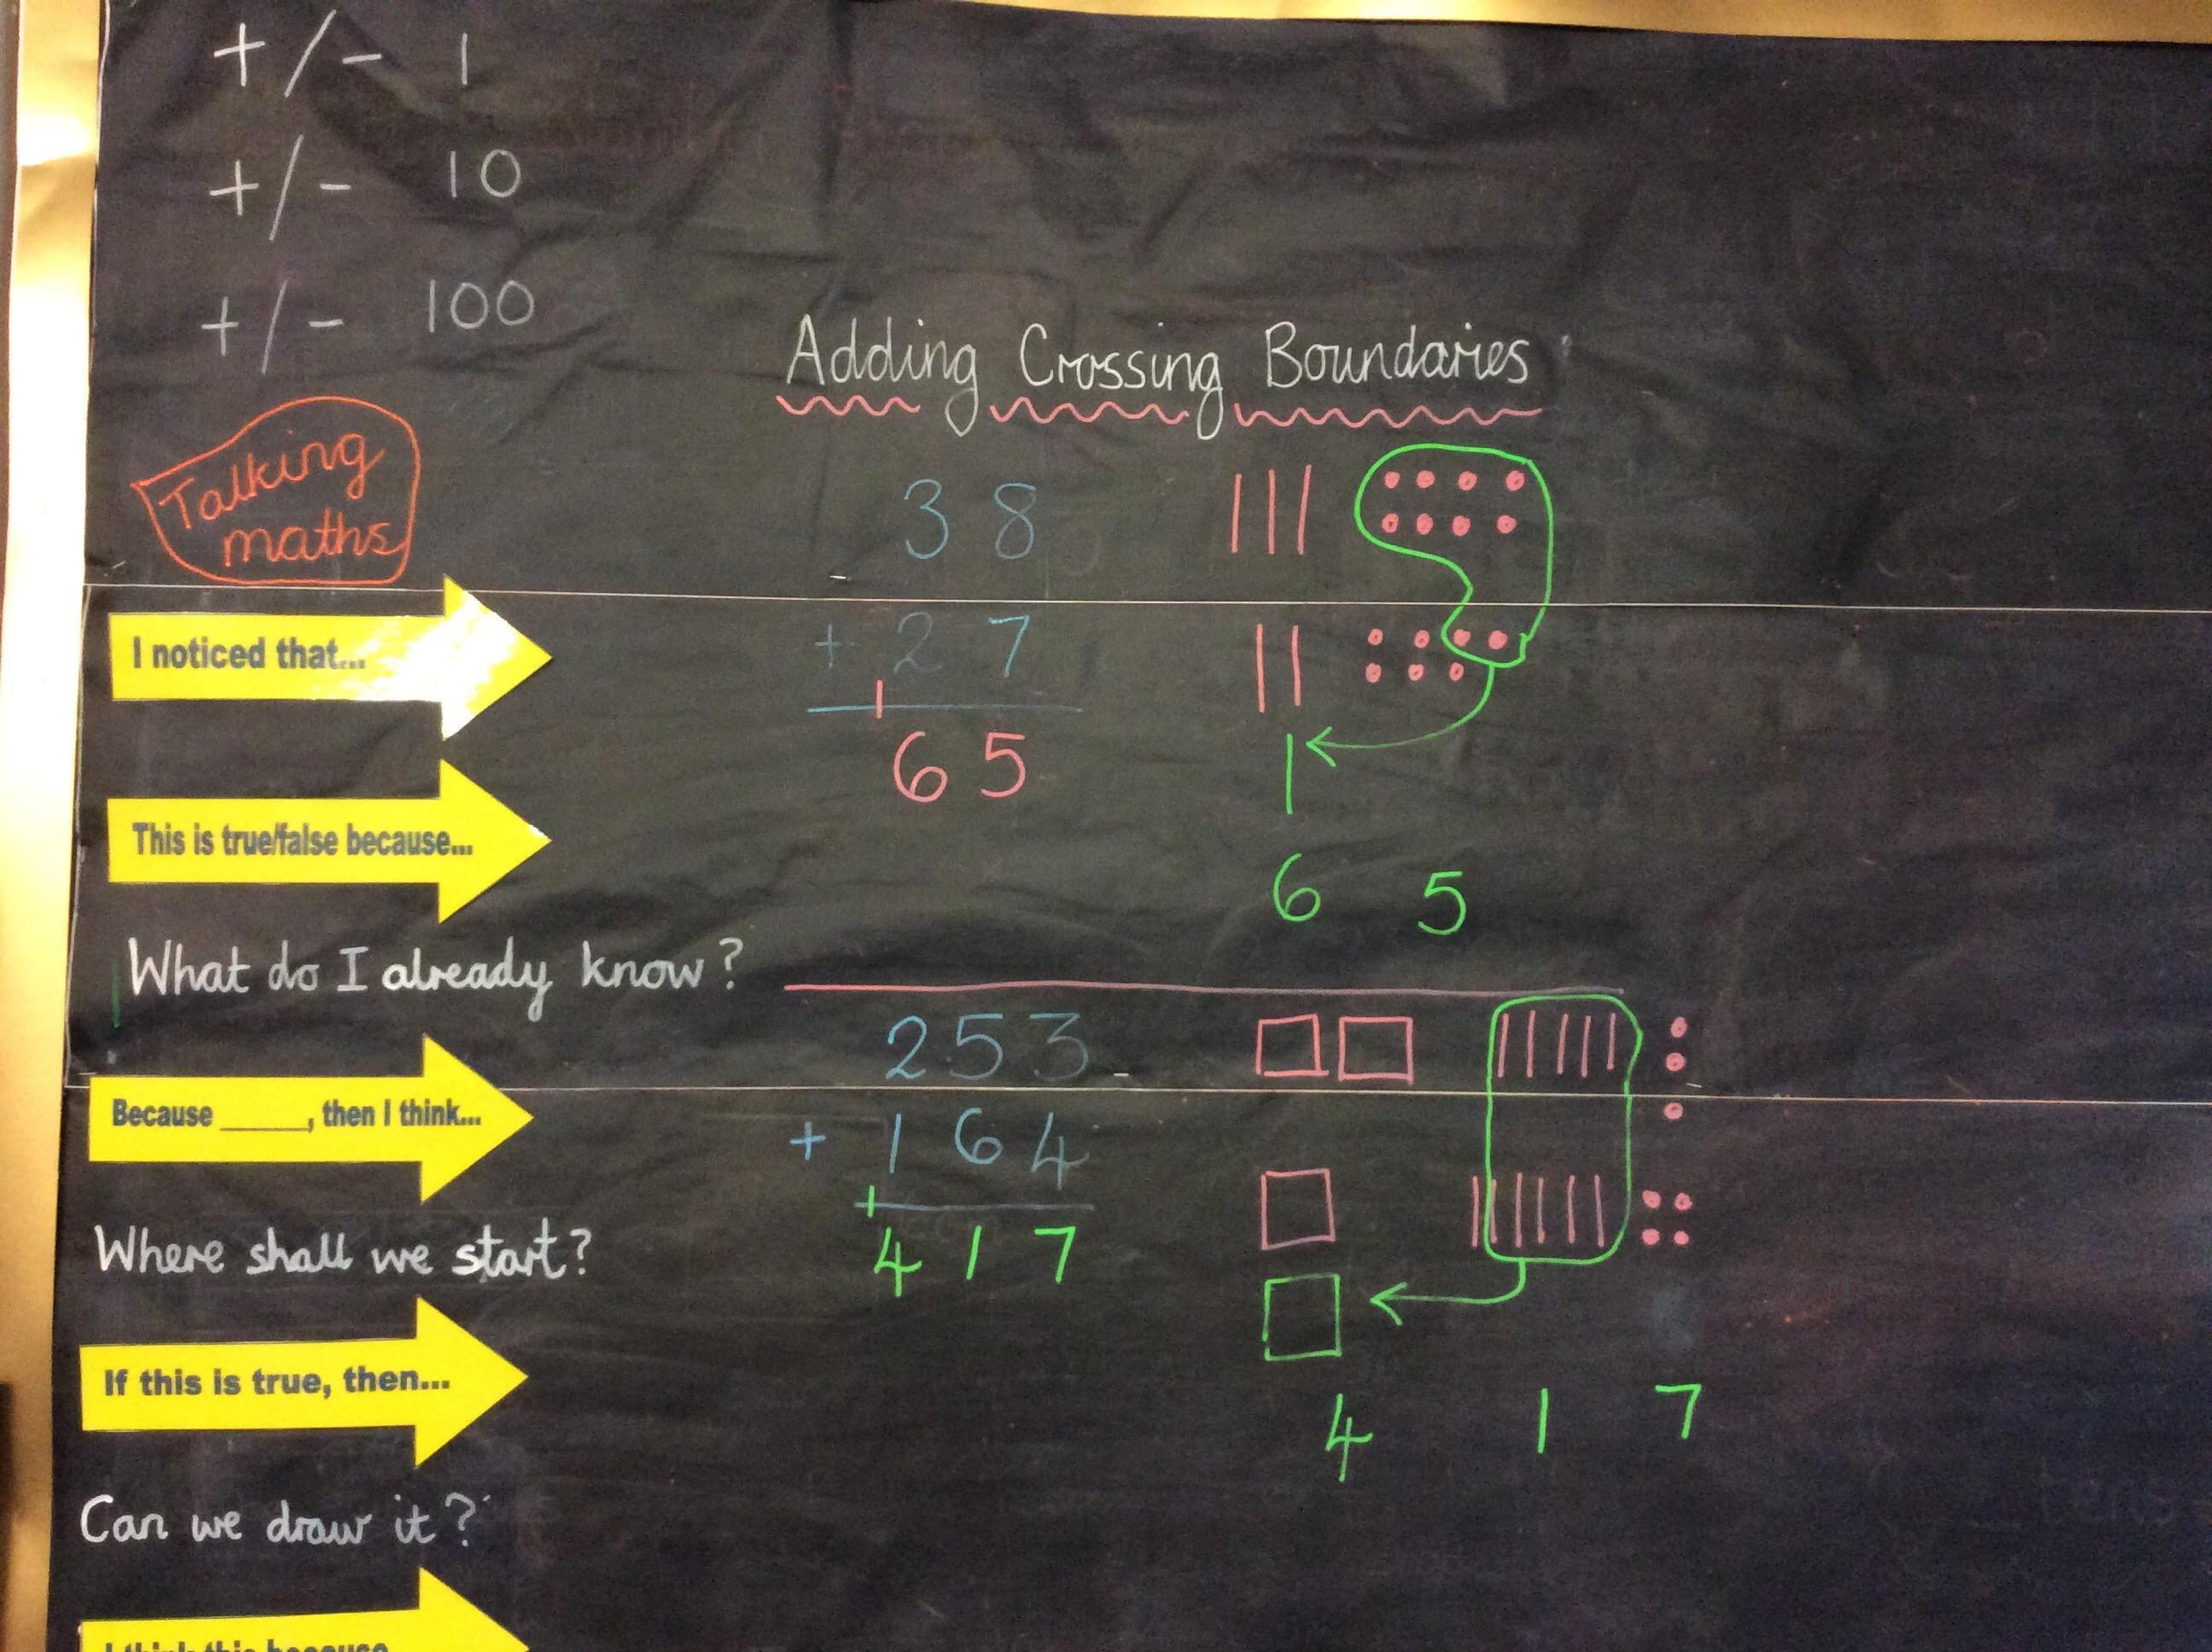 +/- 1
+/- 10
+/- 100
Adding Crossing Boundaries
Talking
maths
38
+ 27
1
65
1
6 5
I noticed that...
This is true/false because...
What do I already know?
253
+ 164
1
417
4 1 7
Because ______, then I think...
Where shall we start?
If this is true, then...
Can we draw it?
I think this because
tens